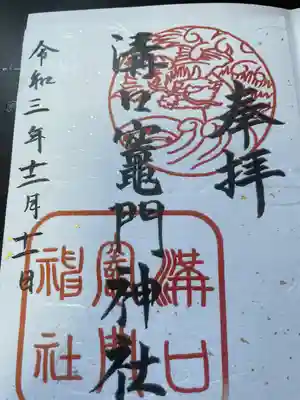 奉拝
溝口竈門神社
令和三年十二月十一日
溝口
竈門
神社